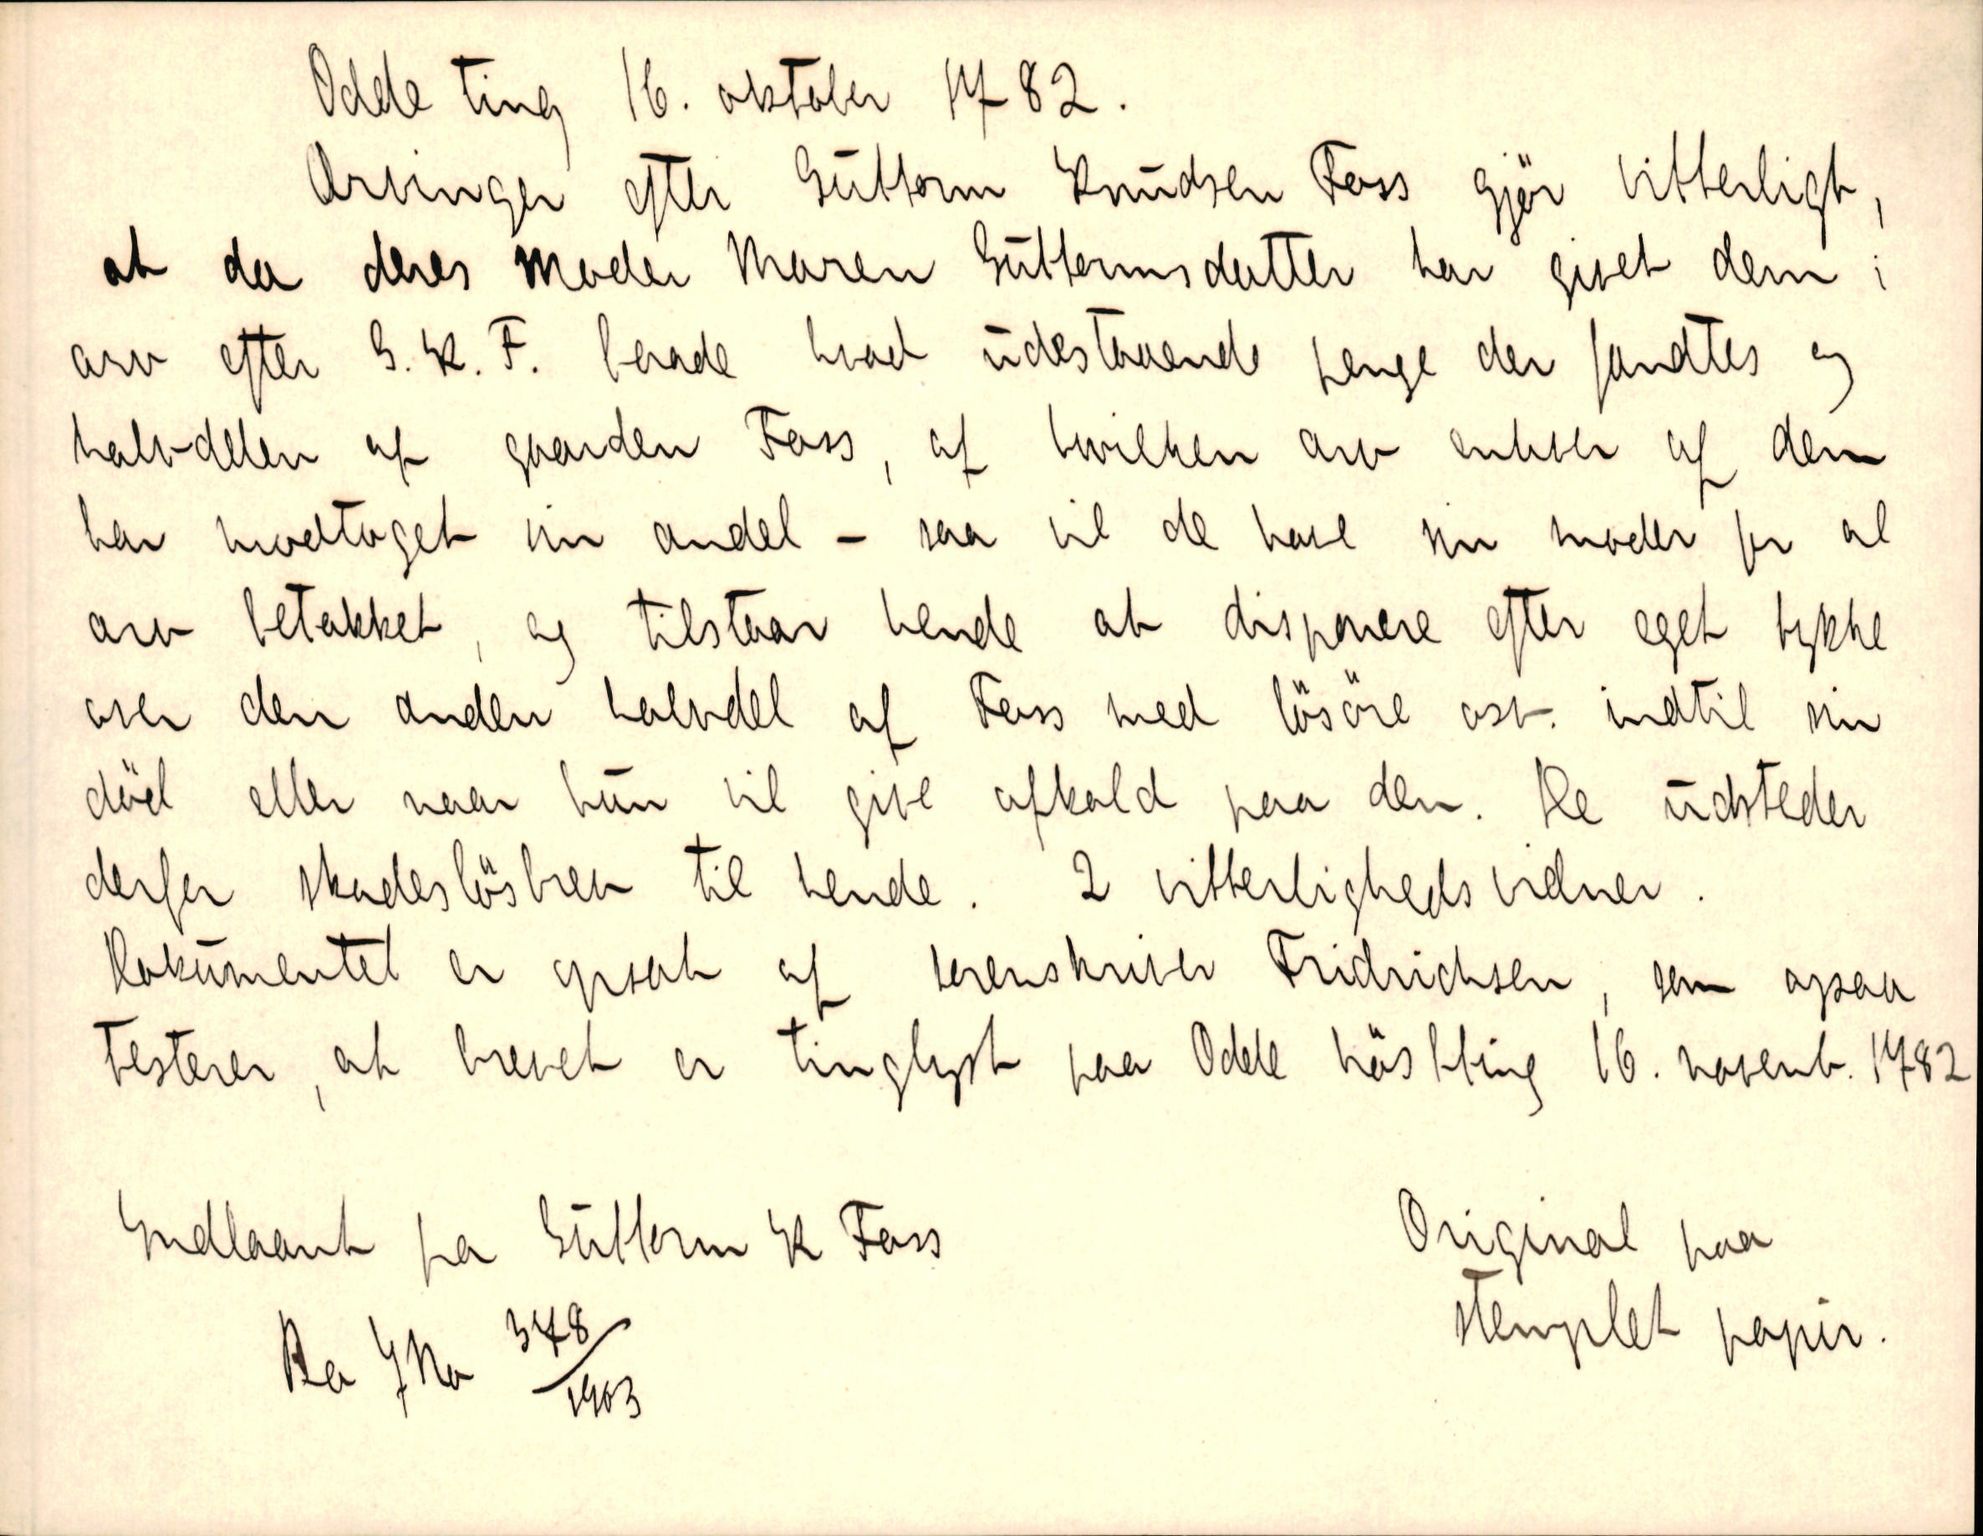 Odde ting 16. oktober 1782.
Arvinger efter Guttorm Knudsen Foss gjör vitterligt,
at da deres moder Maren Guttormsdatter har givet dem i
arv efter G. K. F. baade hvad udestaaende penge der fandtes og
halvdelen af gaarden Foss, af hvilken arv enhver af dem
har modtaget sin andel – saa vil de have sin moder for al
arv betakket, og tilstaar hende at disponere efter eget tykke
over den anden halvdel af Foss med lösöre osv. indtil sin
död eller naar hun vil give afkald paa den. De udsteder
derfor skadeslösbrev til hende. 2 vitterlighedsvidner.
Dokumentet er opsat af sorenskriver Fridrichsen, som ogsaa
testerer, at brevet er tinglyst paa Odde höstting 16. novemb. 1782
Indlaant fra Guttorm K Foss
Original paa
stemplet papir.
Ra J No 348/1903